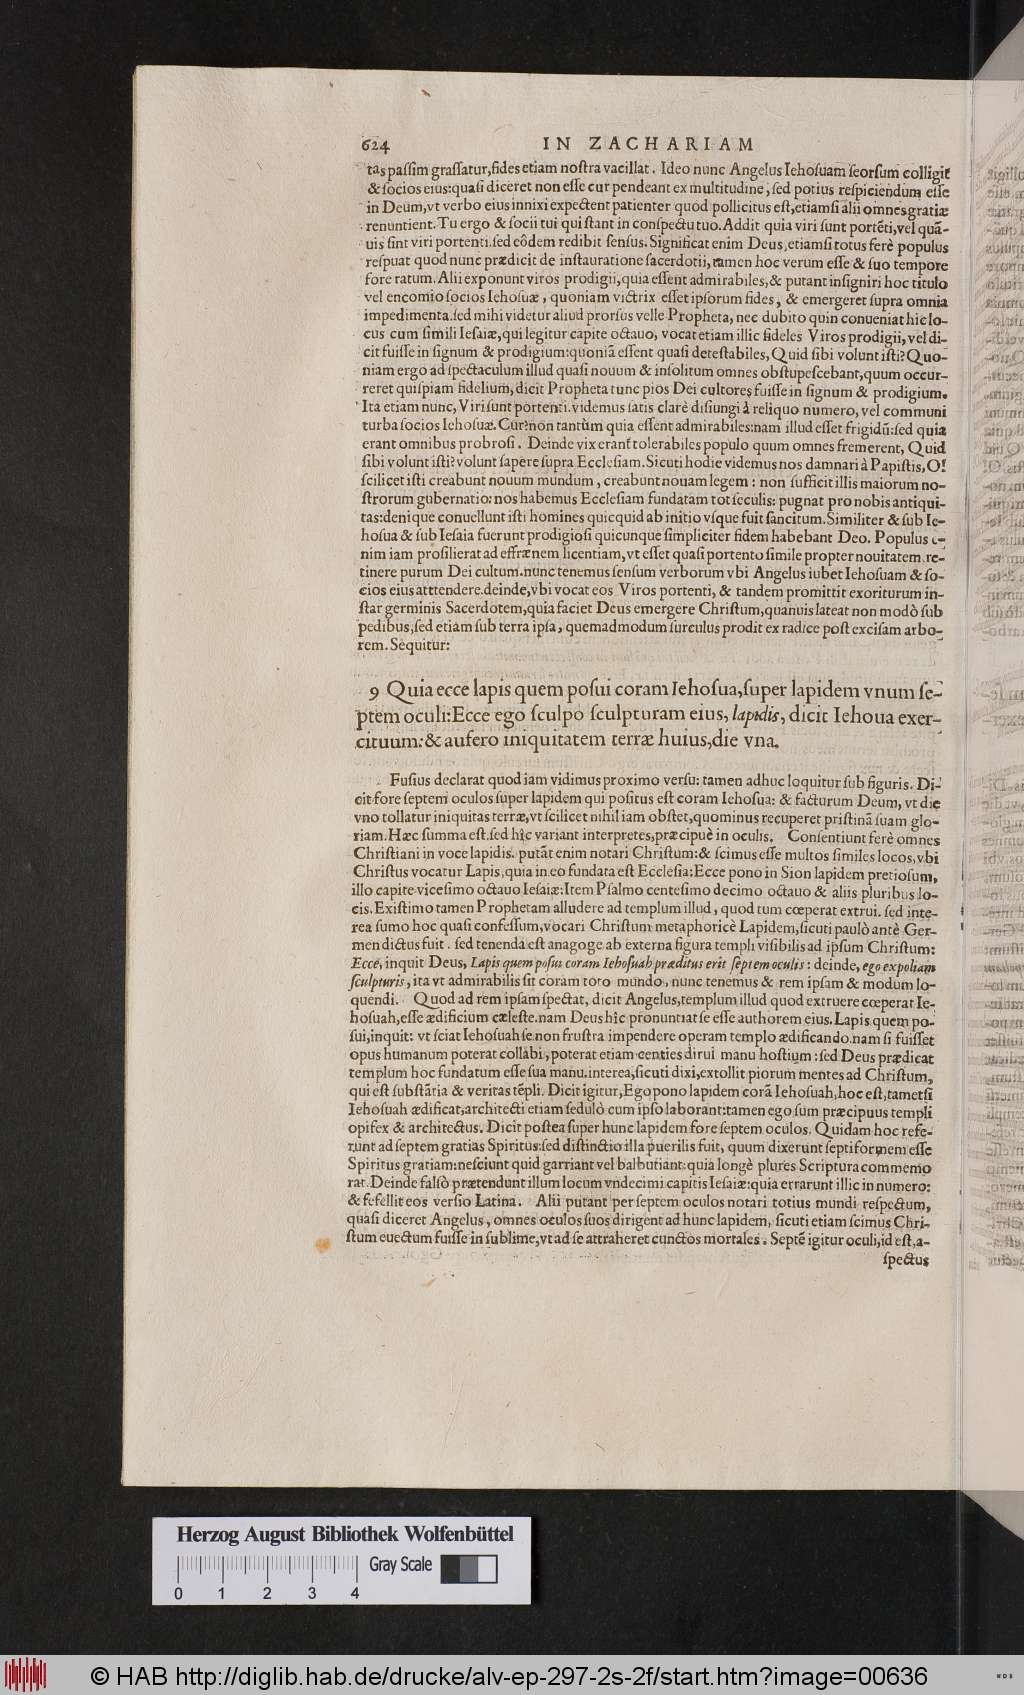 624 IN ZACHARIAM
tas paſſim graſſatur, fides etiam noſtra vacillat. Ideo nunc Angelus Iehoſuam ſeorſum colligit
& ſocios eius: quaſi diceret non eſſe cur pendeant ex multitudine, ſed potius reſpiciendum eſſe
in Deum, vt verbo eius innixi expectent patienter quod pollicitus eſt, etiamſi alii omnes gratiæ
renuntient. Tu ergo & ſocii tui qui ſtant in conſpectu tuo. Addit quia viri ſunt portẽti, vel quã-
uis ſint viri portenti. ſed eôdem redibit ſenſus. Significat enim Deus, etiamſi totus ferè populus
reſpuat quod nunc prædicit de inſtauratione ſacerdotii, tamen hoc verum eſſe & ſuo tempore
fore ratum. Alii exponunt viros prodigii, quia eſſent admirabiles, & putant inſigniri hoc titulo
vel encomio ſocios Iehoſuæ, quoniam victrix eſſet ipſorum fides, & emergeret ſupra omnia
impedimenta. ſed mihi videtur aliud prorſus velle Propheta, nec dubito quin conueniat hic lo-
cus cum ſimili Ieſaiæ, qui legitur capite octauo, vocat etiam illic fideles Viros prodigii, vel di-
cit fuiſſe in ſignum & prodigium: quoniã eſſent quaſi deteſtabiles, Quid ſibi volunt iſti? Quo-
niam ergo ad ſpectaculum illud quaſi nouum & inſolitum omnes obſtupeſcebant, quum occur-
reret quiſpiam fidelium, dicit Propheta tunc pios Dei cultores fuiſſe in ſignum & prodigium.
Ita etiam nunc, Viri ſunt portenti. videmus ſatis clarè diſiungi à reliquo numero, vel communi
turba ſocios Iehoſuæ. Cur? non tantùm quia eſſent admirabiles: nam illud eſſet frigidũ: ſed quia
erant omnibus probroſi. Deinde vix erant tolerabiles populo quum omnes fremerent, Quid
ſibi volunt iſti? volunt ſapere ſupra Eccleſiam. Sicuti hodie videmus nos damnari à Papiſtis, O!
ſcilicet iſti creabunt nouum mundum, creabunt nouam legem: non ſufficit illis maiorum no-
ſtrorum gubernatio: nos habemus Eccleſiam fundatam tot ſeculis: pugnat pro nobis antiqui-
tas: denique conuellunt iſti homines quicquid ab initio vſque fuit ſancitum. Similiter & ſub Ie-
hoſua & ſub Ieſaia fuerunt prodigioſi quicunque ſimpliciter fidem habebant Deo. Populus e-
nim iam proſilierat ad effrænem licentiam, vt eſſet quaſi portento ſimile propter nouitatem, re-
tinere purum Dei cultum. nunc tenemus ſenſum verborum vbi Angelus iubet Iehoſuam & ſo-
cios eius atttendere. deinde, vbi vocat eos Viros portenti, & tandem promittit exoriturum in-
ſtar germinis Sacerdotem, quia faciet Deus emergere Chriſtum, quanuis lateat non modò ſub
pedibus, ſed etiam ſub terra ipſa, quemadmodum ſurculus prodit ex radice poſt exciſam arbo-
rem. Sequitur:
9 Quia ecce lapis quem poſui coram Iehoſua, ſuper lapidem vnum ſe-
ptem oculi: Ecce ego ſculpo ſculpturam eius, lapidis, dicit Iehoua exer-
cituum: & aufero iniquitatem terræ huius, die vna.
Fuſius declarat quod iam vidimus proximo verſu: tamen adhuc loquitur ſub figuris. Di-
cit fore ſeptem oculos ſuper lapidem qui poſitus eſt coram Iehoſua: & facturum Deum, vt die
vno tollatur iniquitas terræ, vt ſcilicet nihil iam obſtet, quominus recuperet priſtinã ſuam glo-
riam. Hæc ſumma eſt. ſed hîc variant interpretes, præcipuè in oculis. Conſentiunt ferè omnes
Chriſtiani in voce lapidis. putãt enim notari Chriſtum: & ſcimus eſſe multos ſimiles locos, vbi
Chriſtus vocatur Lapis, quia in eo fundata eſt Eccleſia: Ecce pono in Sion lapidem pretioſum,
illo capite viceſimo octauo Ieſaiæ: Item Pſalmo centeſimo decimo octauo & aliis pluribus lo-
cis. Exiſtimo tamen Prophetam alludere ad templum illud, quod tum cœperat extrui. ſed inte-
rea ſumo hoc quaſi confeſſum, vocari Chriſtum metaphoricè Lapidem, ſicuti paulò antè Ger-
men dictus fuit. ſed tenenda eſt anagoge ab externa figura templi viſibilis ad ipſum Chriſtum:
Ecce, inquit Deus, Lapis quem poſui coram Iehoſuah præditus erit ſeptem oculis: deinde, ego expoliam
ſculpturis, ita vt admirabilis ſit coram toto mundo, nunc tenemus & rem ipſam & modum lo-
quendi. Quod ad rem ipſam ſpectat, dicit Angelus, templum illud quod extruere cœperat Ie-
hoſuah, eſſe ædificium cæleſte. nam Deus hîc pronuntiat ſe eſſe authorem eius. Lapis quem po-
ſui, inquit: vt ſciat Iehoſuah ſe non fruſtra impendere operam templo ædificando. nam ſi fuiſſet
opus humanum poterat collabi, poterat etiam centies dirui manu hoſtium: ſed Deus prædicat
templum hoc fundatum eſſe ſua manu. interea, ſicuti dixi, extollit piorum mentes ad Chriſtum,
qui eſt ſubſtãtia & veritas tẽpli. Dicit igitur, Ego pono lapidem corã Iehoſuah, hoc eſt, tametſi
Iehoſuah ædificat, architecti etiam ſedulò cum ipſo laborant: tamen ego ſum præcipuus templi
opifex & architectus. Dicit poſtea ſuper hunc lapidem fore ſeptem oculos. Quidam hoc refe-
runt ad ſeptem gratias Spiritus: ſed diſtinctio illa puerilis fuit, quum dixerunt ſeptiformem eſſe
Spiritus gratiam: neſciunt quid garriant vel balbutiant: quia longè plures Scriptura commemo
rat. Deinde falſò prætendunt illum locum vndecimi capitis Ieſaiæ: quia errarunt illic in numero:
& fefellit eos verſio Latina. Alii putant per ſeptem oculos notari totius mundi reſpectum,
quaſi diceret Angelus, omnes oculos ſuos dirigent ad hunc lapidem, ſicuti etiam ſcimus Chri-
ſtum euectum fuiſſe in ſublime, vt ad ſe attraheret cunctos mortales. Septẽ igitur oculi, id eſt, a-
ſpectus
Herzog August Bibliothek Wolfenbüttel
Gray Scale
0 1 2 3 4
© HAB http://diglib.hab.de/drucke/alv-ep-297-2s-2f/start.htm?image=00636